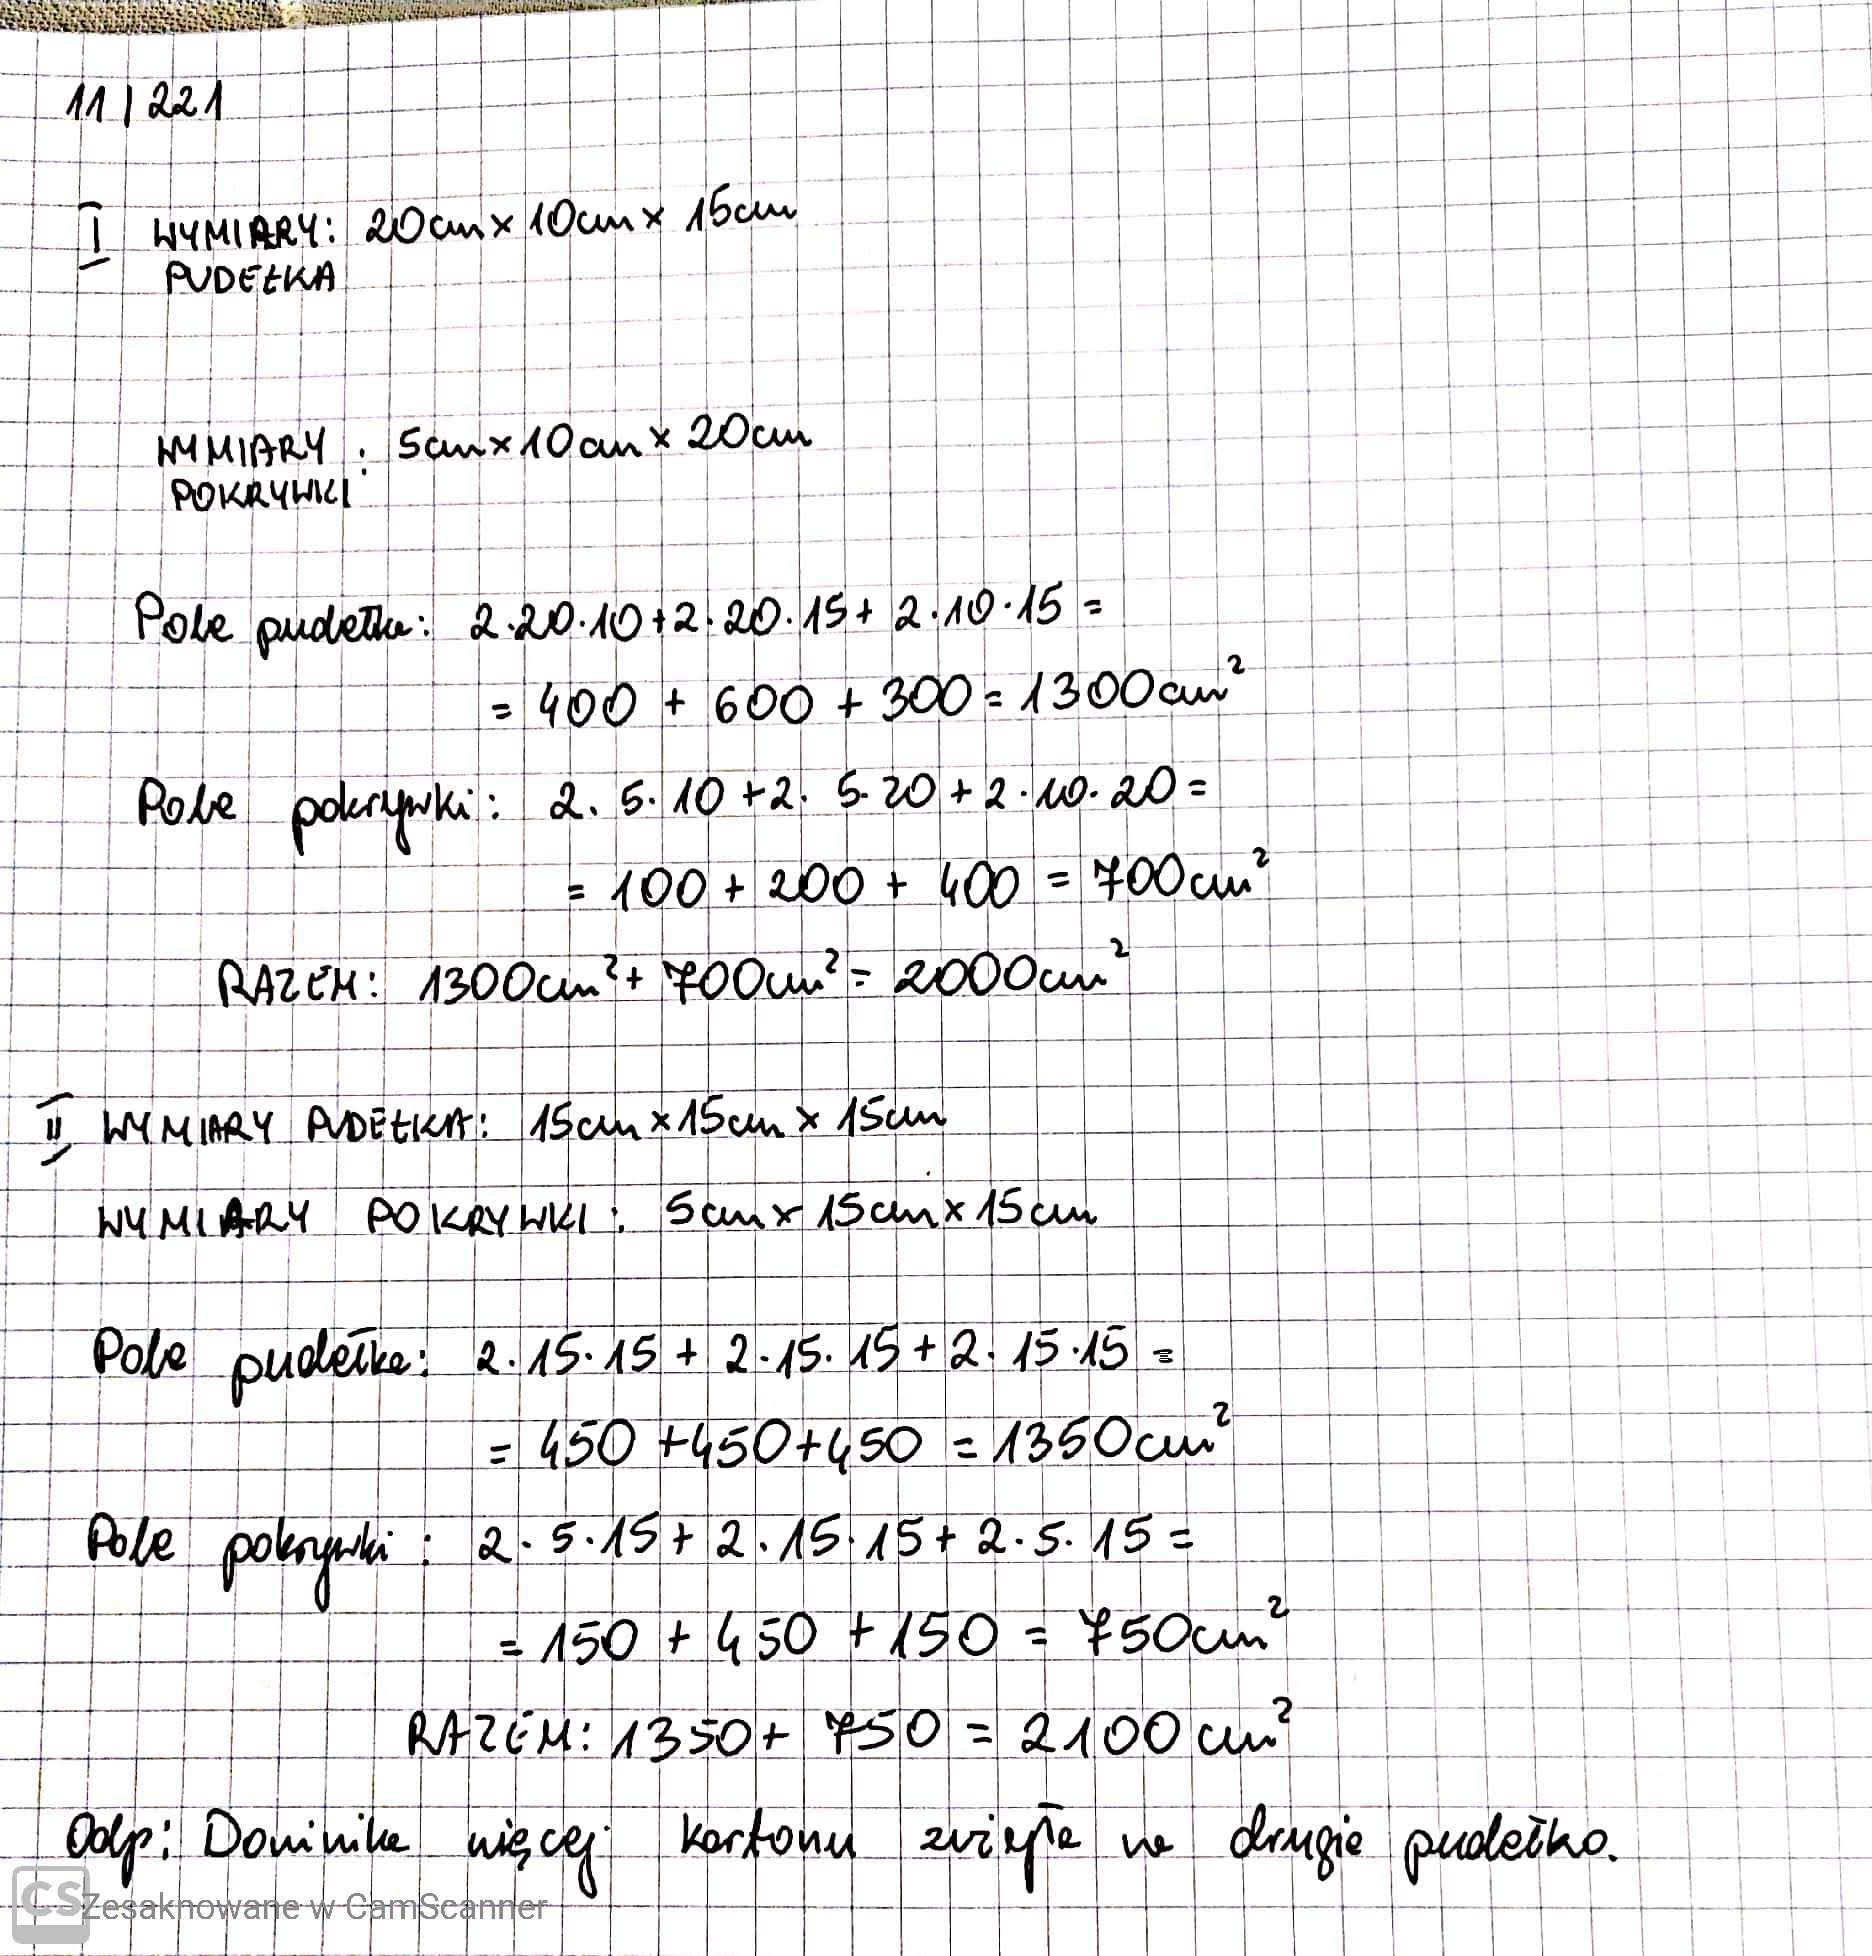 11 | 221
I WYMIARY: 20cm x 10cm x 15cm
PUDEŁKA
WYMIARY : 5cm x 10cm x 20cm
POKRYWKI
Pole pudełka: 2·20·10+2·20·15+ 2·10·15 =
= 400 + 600 + 300 = 1300cm²
Pole pokrywki: 2·5·10+2·5·20+2·10·20=
= 100 + 200 + 400 = 700cm²
RAZEM: 1300cm²+ 700cm² = 2000cm²
II WYMIARY PUDEŁKA: 15cm x 15cm x 15cm
WYMIARY POKRYWKI: 5cm x 15cm x 15cm
Pole pudełka: 2·15·15 + 2·15·15 + 2·15·15 =
= 450 +450+450 = 1350cm²
Pole pokrywki: 2·5·15+ 2·15·15+ 2·5·15=
= 150 + 450 + 150 = 750cm²
RAZEM: 1350+ 750 = 2100 cm²
Odp: Dominika więcej kartonu zużyła na drugie pudełko.
CS Zesaknowane w CamScanner